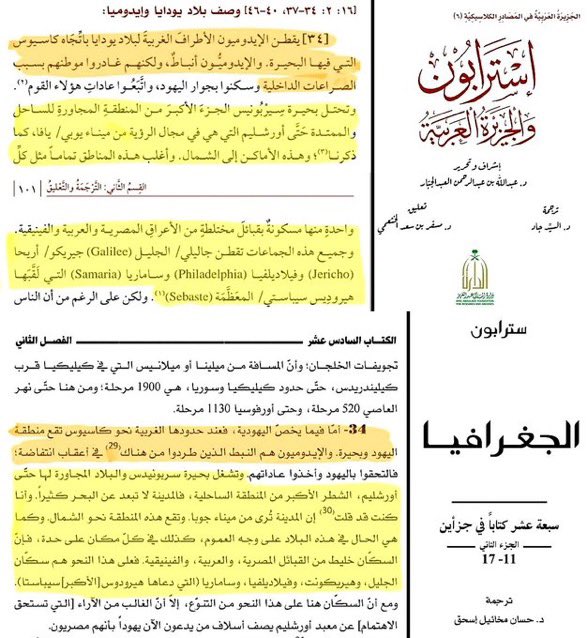 [١٦: ٢: ٣٤-٣٧، ٤٠-٤٦] وصف بلاد يودايا وإيدوميا:
[٣٤] يقطن الإيدوميون الأطراف الغربية لبلاد يودايا باتّجاه كاسيوس
التي فيها البحيرة. والإيدوميُّون أنباطٌ، ولكنهم غادروا موطنهم بسبب
الصراعات الداخلية وسكنوا بجوار اليهود، واتَّبَعُوا عاداتِ هؤلاء القوم(٢).
وتحتل بحيرة سِيرْبُونيس الجزءَ الأكبرَ من المنطقة المجاورةِ للساحل
والممتدة حَتَّى أورشليم التي هي في مجال الرؤية من ميناء يوبي/ يافا، كما
ذكرنا(٣)؛ وهذه الأماكن إلى الشمال. وأغلب هذه المناطق تماماً مثل كلّ
القِسم الثَّاني: التَّرْجَمَة والتَّعْليق | ١٠١ |
واحدةٍ منها مسكونةٌ بقبائل مختلطةٍ من الأعراق المصرية والعربية والفينيقية.
وجميع هذه الجماعات تقطن جاليلي/ الجليل (Galilee) جيريكو/ أريحا
(Jericho) وفيلاديلفيا (Philadelphia) وساماريا (Samaria) التي لَقَّبَهَا
هيروديس سيباستي/ المعَظَّمَة (Sebaste)(١). ولكن على الرغم من أن الناس
الجَزِيرَةُ العَرَبِيَّة في المَصَادِرِ الكلاسِيكِيَّة (٦)
إسترابون
والجزيرة العربية
بإشراف وتحرير
د. عبدالله بن عبدالرحمن العبدالجبار
ترجمة
د. السيد جاد
تعليق
د. مسفر بن سعد الخثعمي
الكتاب السادس عشر
الفصل الثاني
تجويفات الخلجان؛ وأنّ المسافة من ميلينا أو ميلانيس التي في كيليكيا قرب
كيليندريدس، حتّى حدود كيليكيا وسوريا، هي 1900 مرحلة؛ ومن هنا حتى نهر
العاصي 520 مرحلة، وحتى أورفوسيا 1130 مرحلة.
34- أمّا فيما يخصّ اليهودية، فعند حدودها الغربية نحو كاسيوس تقع منطقة
اليهود وبحيرة. والإيدوميون هم النبط الذين طردوا من هناك(29) في أعقاب انتفاضة؛
فالتحقوا باليهود وأخذوا عاداتهم. وتشغل بحيرة سربونيدس والبلاد المجاورة لها حتّى
أورشليم، الشطر الأكبر من المنطقة الساحلية، فالمدينة لا تبعد عن البحر كثيراً. وأنا
كنت قد قلت(30) إن المدينة تُرى من ميناء جوبا. وتقع هذه المنطقة نحو الشمال. وكما
هي الحال في هذه البلاد على وجه العموم، كذلك في كلّ مكان على حدة، فإنّ
السكّان خليط من القبائل المصرية، والعربية، والفينيقية. فعلى هذا النحو هم سكّان
الجليل، وهيريكونت، وفيلادلفيا، وساماريا (التي دعاها هيرودوس [الأكبر]سيباستا).
ومع أنّ السكّان هنا على هذا النحو من التنوّع، إلاّ أنّ الغالب من الآراء [التي تستحق
الاهتمام] عن معبد أورشليم يصف أسلاف من يدعون الآن يهوداً بأنهم مصريون.
سترابون
الجغرافيا
سبعة عشر كتاباً في جزأين
الجزء الثاني
11- 17
ترجمة
د. حسان مخائيل إسحق